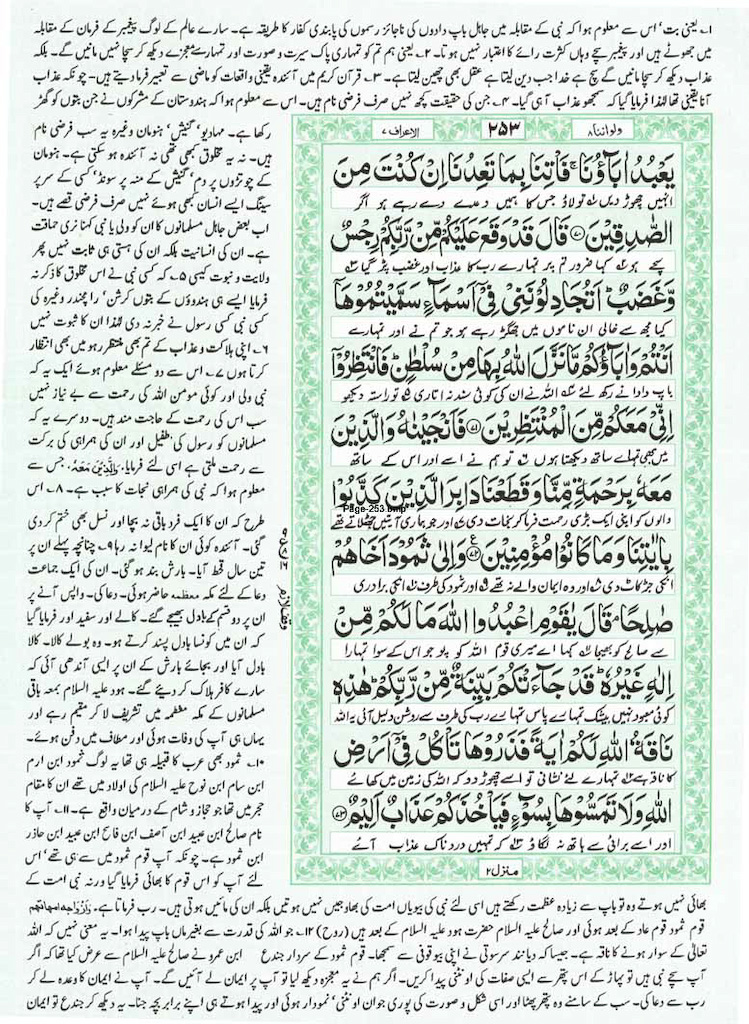 ۱۔ یعنی بت‘ اس سے معلوم ہوا کہ نبی کے مقابلہ میں جاہل باپ دادوں کی ناجائز رسموں کی پابندی کفار کا طریقہ ہے۔ سارے عالم کے لوگ پیغمبر کے فرمان کے مقابلہ
میں جھوٹے ہیں اور پیغمبر سچے وہاں کثرت رائے کا اعتبار نہیں ہوتا۔ ۲۔ یعنی ہم تم کو تمہاری پاک سیرت و صورت اور تمہارے معجزے دیکھ کر سچا نہیں مانیں گے۔ بلکہ
عذاب دیکھ کر سچا مانیں گے سچ ہے خدا جب دین لیتا ہے عقل بھی چھین لیتا ہے۔ ۳۔ قرآن کریم میں آئندہ یقینی واقعات کو ماضی سے تعبیر فرما دیتے ہیں۔ چونکہ عذاب
آنا یقینی تھا لہٰذا فرمایا گیا کہ سمجھو عذاب آہی گیا۔ ۴۔ جن کی حقیقت کچھ نہیں صرف فرضی نام ہیں۔ اس سے معلوم ہوا کہ ہندوستان کے مشرکوں نے جن بتوں کو گھڑ
رکھا ہے۔ مہادیو‘ گنیش‘ ہنومان وغیرہ یہ سب فرضی نام
ہیں۔ نہ یہ مخلوق کبھی تھی نہ آئندہ ہو سکتی ہے۔ ہنومان
کے چوتڑوں پر دم‘ گنیش کے منہ پر سونڈ‘ کسی کے سر پر
سینگ ایسے انسان کبھی ہوئے نہیں صرف فرضی قصے ہیں۔
اب بعض جاہل مسلمانوں کا ان کو ولی یا نبی کہنا نری حماقت
ہے۔ ان کی انسانیت بلکہ ان کی ہستی ہی ثابت نہیں پھر
ولایت و نبوت کیسی ۵۔ کہ کسی نبی نے اس مخلوق کا ذکر نہ
فرمایا ایسے ہی ہندوؤں کے بتوں کرشن‘ را مچندر وغیرہ کی
کسی نبی کسی رسول نے خبر نہ دی لہٰذا ان کا ثبوت نہیں
۶۔ اپنی ہلاکت و عذاب کے تم بھی منتظر رہو میں بھی انتظار
کرتا ہوں ۷۔ اس سے دو مسئلے معلوم ہوئے ایک یہ کہ
نبی ولی اور کوئی مومن اللہ کی رحمت سے بے نیاز نہیں
سب اس کی رحمت کے حاجت مند ہیں۔ دوسرے یہ کہ
مسلمانوں کو رسول کی طفیل اور ان کی ہمراہی کی برکت
سے رحمت ملتی ہے اسی لئے فرمایا۔ وَالَّذِيْنَ مَعَهٗ۔ جس سے
معلوم ہوا کہ نبی کی ہمراہی نجات کا سبب ہے۔ ۸۔ اس
طرح کہ ان کا ایک فرد باقی نہ بچا اور نسل بھی ختم کر دی
گئی۔ آئندہ کوئی ان کا نام لیوا نہ رہا ۹۔ چنانچہ پہلے ان پر
تین سال قحط آیا۔ بارش بند ہو گئی۔ ان کی ایک جماعت
دعا کے لئے مکہ معظمہ حاضر ہوئی۔ دعا کی۔ واپس آنے پر
ان پر دو قسم کے بادل بھیجے گئے۔ کالے اور سفید اور فرمایا گیا
کہ ان میں کونسا بادل پسند کرتے ہو۔ وہ بولے کالا۔ کالا
بادل آیا اور بجائے بارش کے ان پر ایسی آندھی آئی کہ
سارے کافر ہلاک کر دیئے گئے۔ ہود علیہ السلام بمعہ باقی
مسلمانوں کے مکہ معظمہ میں تشریف لا کر مقیم رہے اور
یہاں ہی آپ کی وفات ہوئی اور مطاف میں دفن ہوئے۔
۱۰۔ ثمود بھی عرب کا قبیلہ ہی تھا یہ لوگ ثمود ابن ارم
ابن سام ابن نوح علیہ السلام کی اولاد میں تھے ان کا مقام
حجر میں تھا جو حجاز و شام کے درمیان واقع ہے۔ ۱۱۔ آپ کا
نام صالح ابن عبید ابن آصف ابن ماسح ابن عبید ابن حاذر
ابن ثمود ہے۔ چونکہ آپ قوم ثمود میں سے ہی تھے‘ اس
لئے آپ کو اس قوم کا بھائی فرمایا گیا ورنہ نبی امت کے
ولواننا۸
۲۵۳
الاعراف۷
يَعْبُدُ اٰبَآؤُنَا ۚ فَاْتِنَا بِمَا تَعِدُنَآ اِنْ كُنْتَ مِنَ
انہیں چھوڑ دیں لہ تو لاؤ جس کا ہمیں وعدہ دے رہے ہو اگر
الصّٰدِقِيْنَ ﴿۷۰﴾ قَالَ قَدْ وَقَعَ عَلَيْكُمْ مِّنْ رَّبِّكُمْ رِجْسٌ
سچے ہو کہا ضرور تم پر تمہارے رب کا عذاب اور غضب پڑ گیا
وَّغَضَبٌ ؕ اَتُجَادِلُوْنَنِيْ فِيْٓ اَسْمَآءٍ سَمَّيْتُمُوْهَآ
کیا مجھ سے خالی ان ناموں میں جھگڑ رہے ہو جو تم نے اور تمہارے
اَنْتُمْ وَاٰبَآؤُكُمْ مَّا نَزَّلَ اللّٰهُ بِهَا مِنْ سُلْطٰنٍ ؕ فَانْتَظِرُوْٓا
باپ دادا نے رکھ لئے اللہ نے ان کی کوئی سند نہ اتاری تو راستہ دیکھو
اِنِّيْ مَعَكُمْ مِّنَ الْمُنْتَظِرِيْنَ ﴿۷۱﴾ فَاَنْجَيْنٰهُ وَالَّذِيْنَ
میں بھی تمہارے ساتھ دیکھتا ہوں تو ہم نے اسے اور اس کے ساتھ
مَعَهٗ بِرَحْمَةٍ مِّنَّا وَقَطَعْنَا دَابِرَ الَّذِيْنَ كَذَّبُوْا
Page-253.bmp
والوں کو اپنی ایک بڑی رحمت فرما کر نجات دی اور جو ہماری آیتیں جھٹلاتے تھے
بِاٰيٰتِنَا وَمَا كَانُوْا مُؤْمِنِيْنَ ﴿۷۲﴾ ع وَاِلٰى ثَمُوْدَ اَخَاهُمْ
انکی جڑ کاٹ دی اور وہ ایمان والے نہ تھے اور ثمود کی طرف انکی برادری
صٰلِحًا ۘ قَالَ يٰقَوْمِ اعْبُدُوا اللّٰهَ مَا لَكُمْ مِّنْ
سے صالح کو بھیجا کہا اے میری قوم اللہ کو پوجو اس کے سوا تمہارا
اِلٰهٍ غَيْرُهٗ ؕ قَدْ جَآءَتْكُمْ بَيِّنَةٌ مِّنْ رَّبِّكُمْ ؕ هٰذِهٖ
کوئی معبود نہیں بیشک تمہارے پاس تمہارے رب کی طرف سے روشن دلیل آئی یہ اللہ
نَاقَةُ اللّٰهِ لَكُمْ اٰيَةً فَذَرُوْهَا تَاْكُلْ فِيْٓ اَرْضِ
کا ناقہ ہے تمہارے لئے نشانی تو اسے چھوڑ دو کہ اللہ کی زمین میں کھائے
اللّٰهِ وَلَا تَمَسُّوْهَا بِسُوْٓءٍ فَيَاْخُذَكُمْ عَذَابٌ اَلِيْمٌ ﴿۷۳﴾
اور اسے برائی سے ہاتھ نہ لگاؤ کہ تمہیں دردناک عذاب آئے
منزل۲
بھائی نہیں ہوتے وہ تو باپ سے زیادہ عظمت رکھتے ہیں اسی لئے نبی کی بیویاں امت کی بھاوجیں نہیں ہوتیں بلکہ ان کی مائیں ہوتی ہیں۔ رب فرماتا ہے۔ وَاَزْوَاجُهٗٓ اُمَّهَاتُهُمْ
قوم ثمود قوم عاد کے بعد ہوئی اور صالح علیہ السلام حضرت ہود علیہ السلام کے بعد ہیں (روح) ۱۲۔ جو اللہ کی قدرت سے بغیر ماں باپ پیدا ہوا۔ یہ معنی نہیں کہ اللہ
تعالیٰ کے سوار ہونے کا ناقہ ہے۔ جیسا کہ دیانند سرسوتی نے اپنی بیوقوفی سے سمجھا۔ قوم ثمود کے سردار جندع ابن عمرو نے صالح علیہ السلام سے عرض کیا تھا کہ اگر
آپ سچے نبی ہیں تو پہاڑ کے اس پتھر سے ایسی صفات کی اونٹنی پیدا کریں۔ اگر ہم نے یہ معجزہ دیکھ لیا تو آپ پر ایمان لے آئیں گے۔ آپ نے ایمان کا وعدہ لے کر
رب سے دعا کی۔ سب کے سامنے وہ پتھر پھٹا اور اسی شکل و صورت کی پوری جوان اونٹنی‘ نمودار ہوئی اور پیدا ہوتے ہی اپنے برابر بچہ جنا۔ یہ دیکھ کر جندع تو ایمان